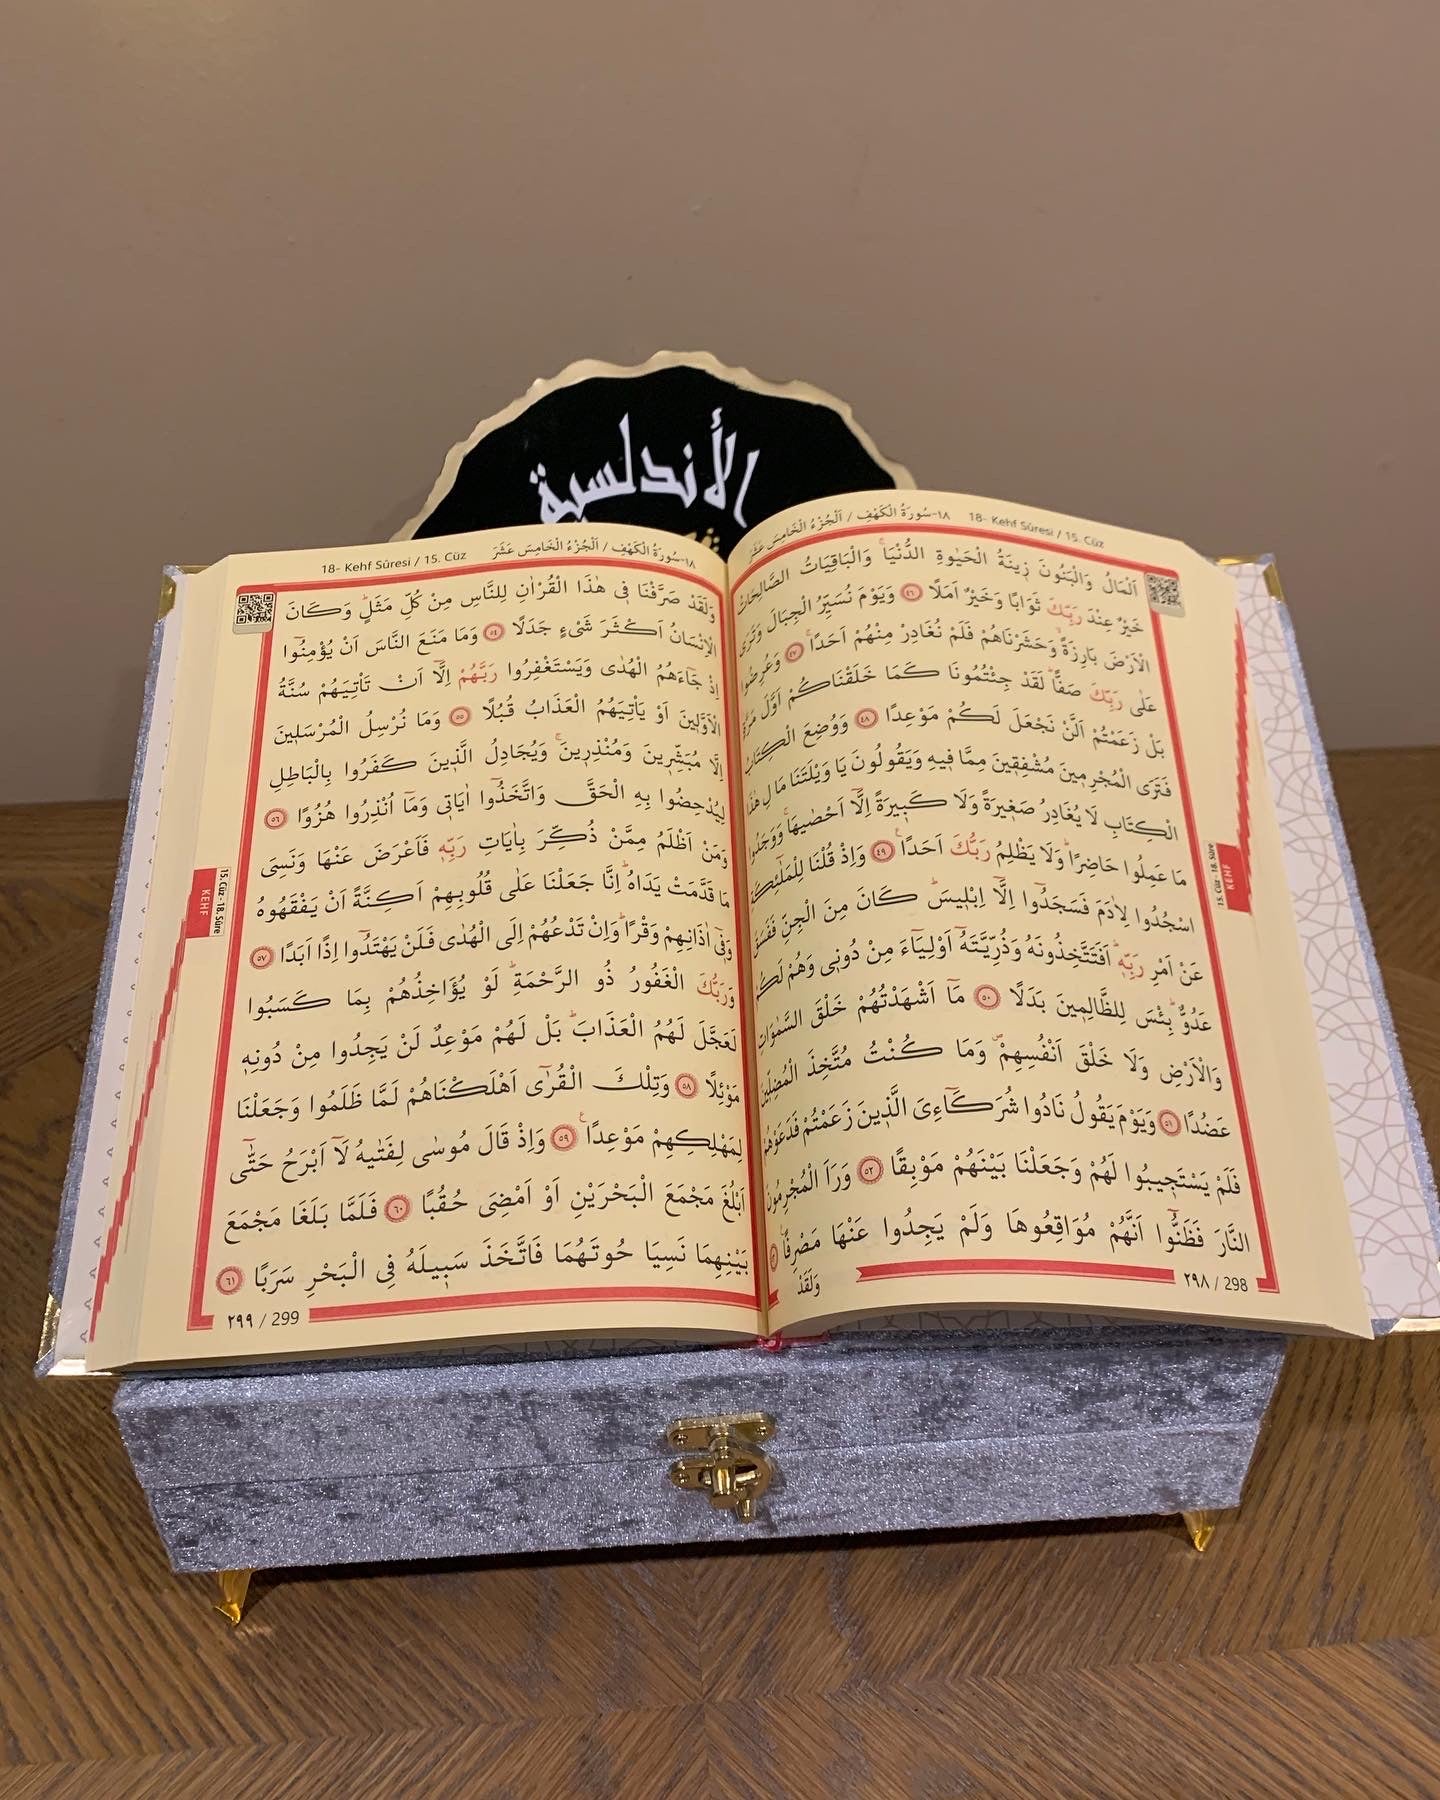 الأندلسية
١٨-سُورَةُ الْكَهْفِ / اَلْجُزْءُ الْخَامِسَ عَشَرَ 18- Kehf Sûresi / 15. Cüz
اَلْمَالُ وَالْبَنُونَ ز۪ينَةُ الْحَيٰوةِ الدُّنْيَاۚ وَالْبَاقِيَاتُ الصَّالِحَاتُ
خَيْرٌ عِنْدَ رَبِّكَ ثَوَابًا وَخَيْرٌ اَمَلًا ٤٦ وَيَوْمَ نُسَيِّرُ الْجِبَالَ وَتَرَى
الْاَرْضَ بَارِزَةًۙ وَحَشَرْنَاهُمْ فَلَمْ نُغَادِرْ مِنْهُمْ اَحَدًاۚ ٤٧ وَعُرِضُوا
عَلٰى رَبِّكَ صَفًّاۜ لَقَدْ جِئْتُمُونَا كَمَا خَلَقْنَاكُمْ اَوَّلَ مَرَّةٍ
بَلْ زَعَمْتُمْ اَلَّنْ نَجْعَلَ لَكُمْ مَوْعِدًا ٤٨ وَوُضِعَ الْكِتَابُ
فَتَرَى الْمُجْرِم۪ينَ مُشْفِق۪ينَ مِمَّا ف۪يهِ وَيَقُولُونَ يَا وَيْلَتَنَا مَالِ هٰذَا
الْكِتَابِ لَا يُغَادِرُ صَغ۪يرَةً وَلَا كَب۪يرَةً اِلَّٓا اَحْصٰيهَاۚ وَوَجَدُوا
مَا عَمِلُوا حَاضِرًاۜ وَلَا يَظْلِمُ رَبُّكَ اَحَدًا۟ ٤٩ وَاِذْ قُلْنَا لِلْمَلٰٓئِكَةِ
اسْجُدُوا لِاٰدَمَ فَسَجَدُٓوا اِلَّٓا اِبْل۪يسَۜ كَانَ مِنَ الْجِنِّ فَفَسَقَ
عَنْ اَمْرِ رَبِّه۪ۜ اَفَتَتَّخِذُونَهُ وَذُرِّيَّتَهُٓ اَوْلِيَٓاءَ مِنْ دُون۪ي وَهُمْ لَكُمْ
عَدُوٌّۜ بِئْسَ لِلظَّالِم۪ينَ بَدَلًا ٥٠ مَٓا اَشْهَدْتُهُمْ خَلْقَ السَّمٰوَاتِ
وَالْاَرْضِ وَلَا خَلْقَ اَنْفُسِهِمْۖ وَمَا كُنْتُ مُتَّخِذَ الْمُضِلّ۪ينَ
عَضُدًا ٥١ وَيَوْمَ يَقُولُ نَادُوا شُرَكَٓاءِيَ الَّذ۪ينَ زَعَمْتُمْ فَدَعَوْهُمْ
فَلَمْ يَسْتَج۪يبُوا لَهُمْ وَجَعَلْنَا بَيْنَهُمْ مَوْبِقًا ٥٢ وَرَاَ الْمُجْرِمُونَ
النَّارَ فَظَنُّٓوا اَنَّهُمْ مُوَاقِعُوهَا وَلَمْ يَجِدُوا عَنْهَا مَصْرِفًا۟
وَلَقَدْ
٢٩٨ / 298
15. Cüz - 18. Sûre
KEHF
18- Kehf Sûresi / 15. Cüz ١٨-سُورَةُ الْكَهْفِ / اَلْجُزْءُ الْخَامِسَ عَشَرَ
وَلَقَدْ صَرَّفْنَا ف۪ي هٰذَا الْقُرْاٰنِ لِلنَّاسِ مِنْ كُلِّ مَثَلٍۜ وَكَانَ
الْاِنْسَانُ اَكْثَرَ شَيْءٍ جَدَلًا ٥٤ وَمَا مَنَعَ النَّاسَ اَنْ يُؤْمِنُٓوا
اِذْ جَٓاءَهُمُ الْهُدٰى وَيَسْتَغْفِرُوا رَبَّهُمْ اِلَّٓا اَنْ تَأْتِيَهُمْ سُنَّةُ
الْاَوَّل۪ينَ اَوْ يَأْتِيَهُمُ الْعَذَابُ قُبُلًا ٥٥ وَمَا نُرْسِلُ الْمُرْسَل۪ينَ
اِلَّا مُبَشِّر۪ينَ وَمُنْذِر۪ينَۚ وَيُجَادِلُ الَّذ۪ينَ كَفَرُوا بِالْبَاطِلِ
لِيُدْحِضُوا بِهِ الْحَقَّ وَاتَّخَذُٓوا اٰيَات۪ي وَمَٓا اُنْذِرُوا هُزُوًا ٥٦
وَمَنْ اَظْلَمُ مِمَّنْ ذُكِّرَ بِاٰيَاتِ رَبِّه۪ فَاَعْرَضَ عَنْهَا وَنَسِيَ
مَا قَدَّمَتْ يَدَاهُۜ اِنَّا جَعَلْنَا عَلٰى قُلُوبِهِمْ اَكِنَّةً اَنْ يَفْقَهُوهُ
وَف۪ٓي اٰذَانِهِمْ وَقْرًاۜ وَاِنْ تَدْعُهُمْ اِلَى الْهُدٰى فَلَنْ يَهْتَدُٓوا اِذًا اَبَدًا ٥٧
وَرَبُّكَ الْغَفُورُ ذُو الرَّحْمَةِۜ لَوْ يُؤَاخِذُهُمْ بِمَا كَسَبُوا
لَعَجَّلَ لَهُمُ الْعَذَابَۜ بَلْ لَهُمْ مَوْعِدٌ لَنْ يَجِدُوا مِنْ دُونِه۪
مَوْئِلًا ٥٨ وَتِلْكَ الْقُرٰٓى اَهْلَكْنَاهُمْ لَمَّا ظَلَمُوا وَجَعَلْنَا
لِمَهْلِكِهِمْ مَوْعِدًا۟ ٥٩ وَاِذْ قَالَ مُوسٰى لِفَتٰيهُ لَٓا اَبْرَحُ حَتّٰٓى
اَبْلُغَ مَجْمَعَ الْبَحْرَيْنِ اَوْ اَمْضِيَ حُقُبًا ٦٠ فَلَمَّا بَلَغَا مَجْمَعَ
بَيْنِهِمَا نَسِيَا حُوتَهُمَا فَاتَّخَذَ سَب۪يلَهُ فِي الْبَحْرِ سَرَبًا ٦١
٢٩٩ / 299
15. Cüz - 18. Sûre
KEHF